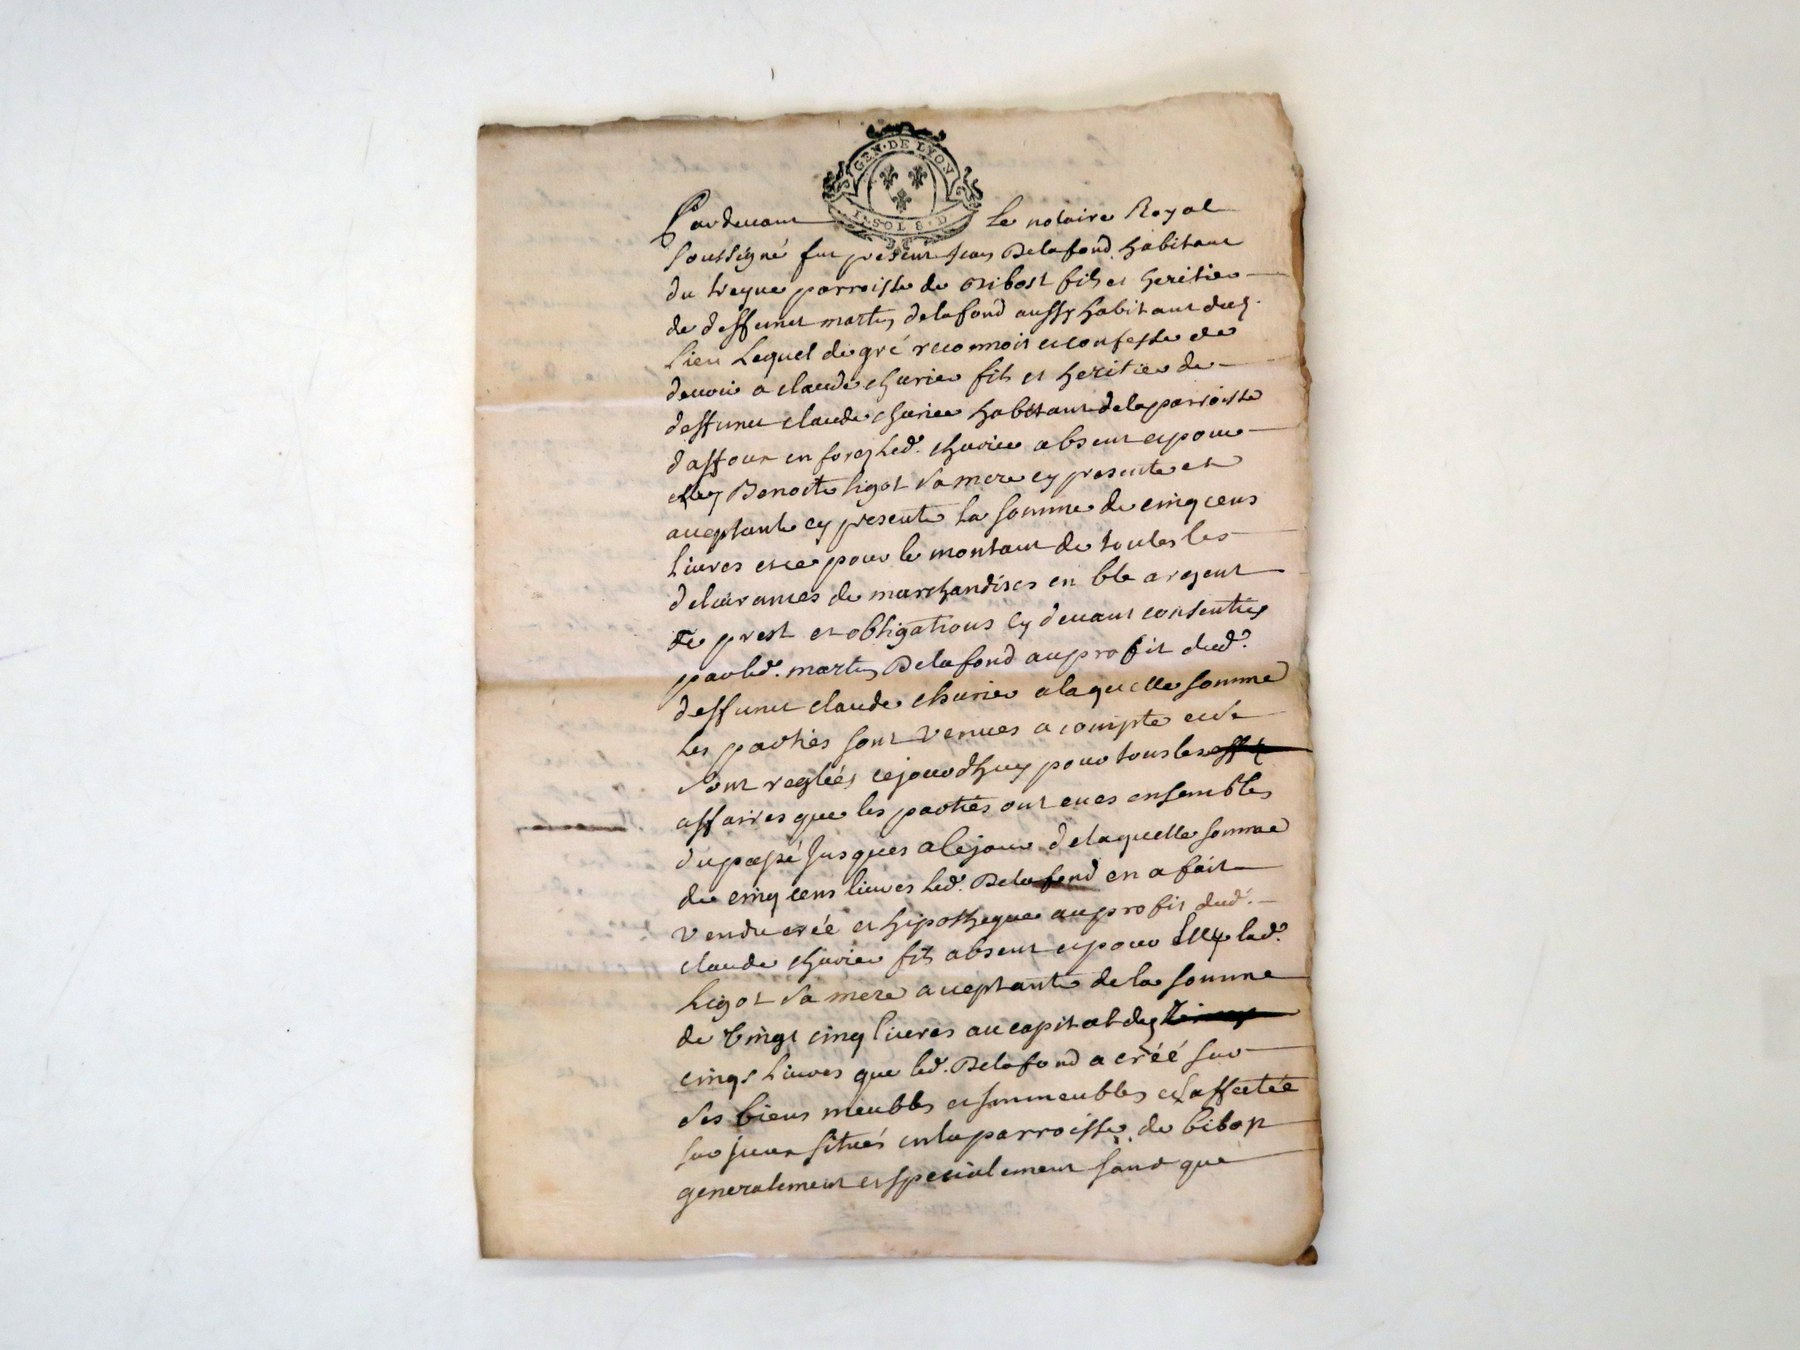 GEN·DE LYON
I·SOL 8·D
Pardevant le notaire Royal
soussigné fut present Jean Delafond habitant
du parroisse de Bibost fils et heritier
de deffunct martin delafond aussy habitant dud.
lieu Lequel de gré reconnoit et confesse de
devoir a claude fils et heritier de
deffunct claude habitant de la parroisse
en forez led. absent et pour
Benoite ligot sa mere cy presente et
acceptante cy presente la somme de cinq cens
livres et ce pour le montant de toutes les
delivrances de marchandises en ble argent
de prest et obligations cy devant consenties
par led. martin Delafond au profit dud.
deffunct claude a laquelle somme
les parties sont venues a compte et se
sont reglées cejourdhuy pour tous les
affaires que les parties ont eues ensembles
du passé jusques a ce jour de laquelle somme
de cinq cens livres led. Delafond en a fait
vendu créé et hipotheque au profit dud.
claude fils absent et pour led.
Ligot sa mere acceptante de la somme
de vingt cinq livres au capital de
cinq livres que led. Delafond a créé sur
ses biens meubles et immeubles et affectée
sur iceux situés en la parroisse de bibost
generalement et specialement sans que